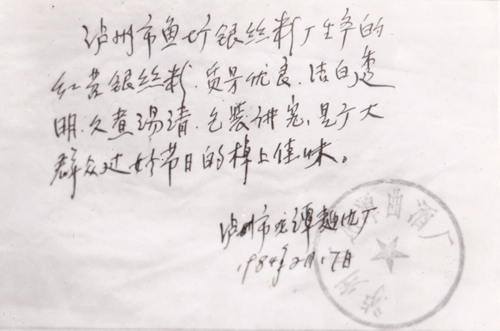 泸州市鱼圹银丝粉厂生产的
红苕银丝粉，质量优良、洁白透
明、久煮汤清、包装讲究，是广大
群众过好节日的棹上佳味。
泸州市龙潭曲酒厂
1984年2月17日